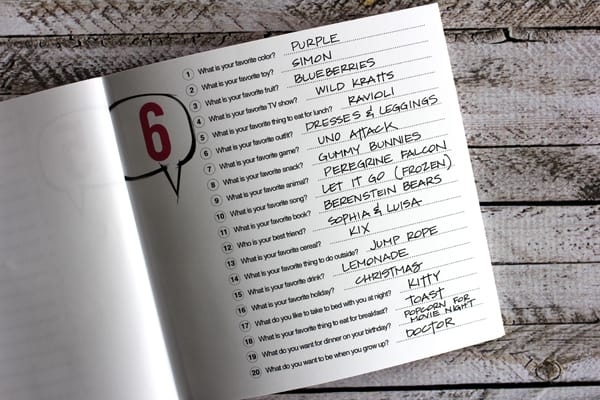 6
1 What is your favorite color? PURPLE
2 What is your favorite toy? SIMON
3 What is your favorite fruit? BLUEBERRIES
4 What is your favorite TV show? WILD KRATTS
5 What is your favorite thing to eat for lunch? RAVIOLI
6 What is your favorite outfit? DRESSES & LEGGINGS
7 What is your favorite game? UNO ATTACK
8 What is your favorite snack? GUMMY BUNNIES
9 What is your favorite animal? PEREGRINE FALCON
10 What is your favorite song? LET IT GO (FROZEN)
11 What is your favorite book? BERENSTEIN BEARS
12 Who is your best friend? SOPHIA & LUISA
13 What is your favorite cereal? KIX
14 What is your favorite thing to do outside? JUMP ROPE
15 What is your favorite drink? LEMONADE
16 What is your favorite holiday? CHRISTMAS
17 What do you like to take to bed with you at night? KITTY
18 What is your favorite thing to eat for breakfast? TOAST
19 What do you want for dinner on your birthday? POPCORN FOR
MOVIE NIGHT
20 What do you want to be when you grow up? DOCTOR